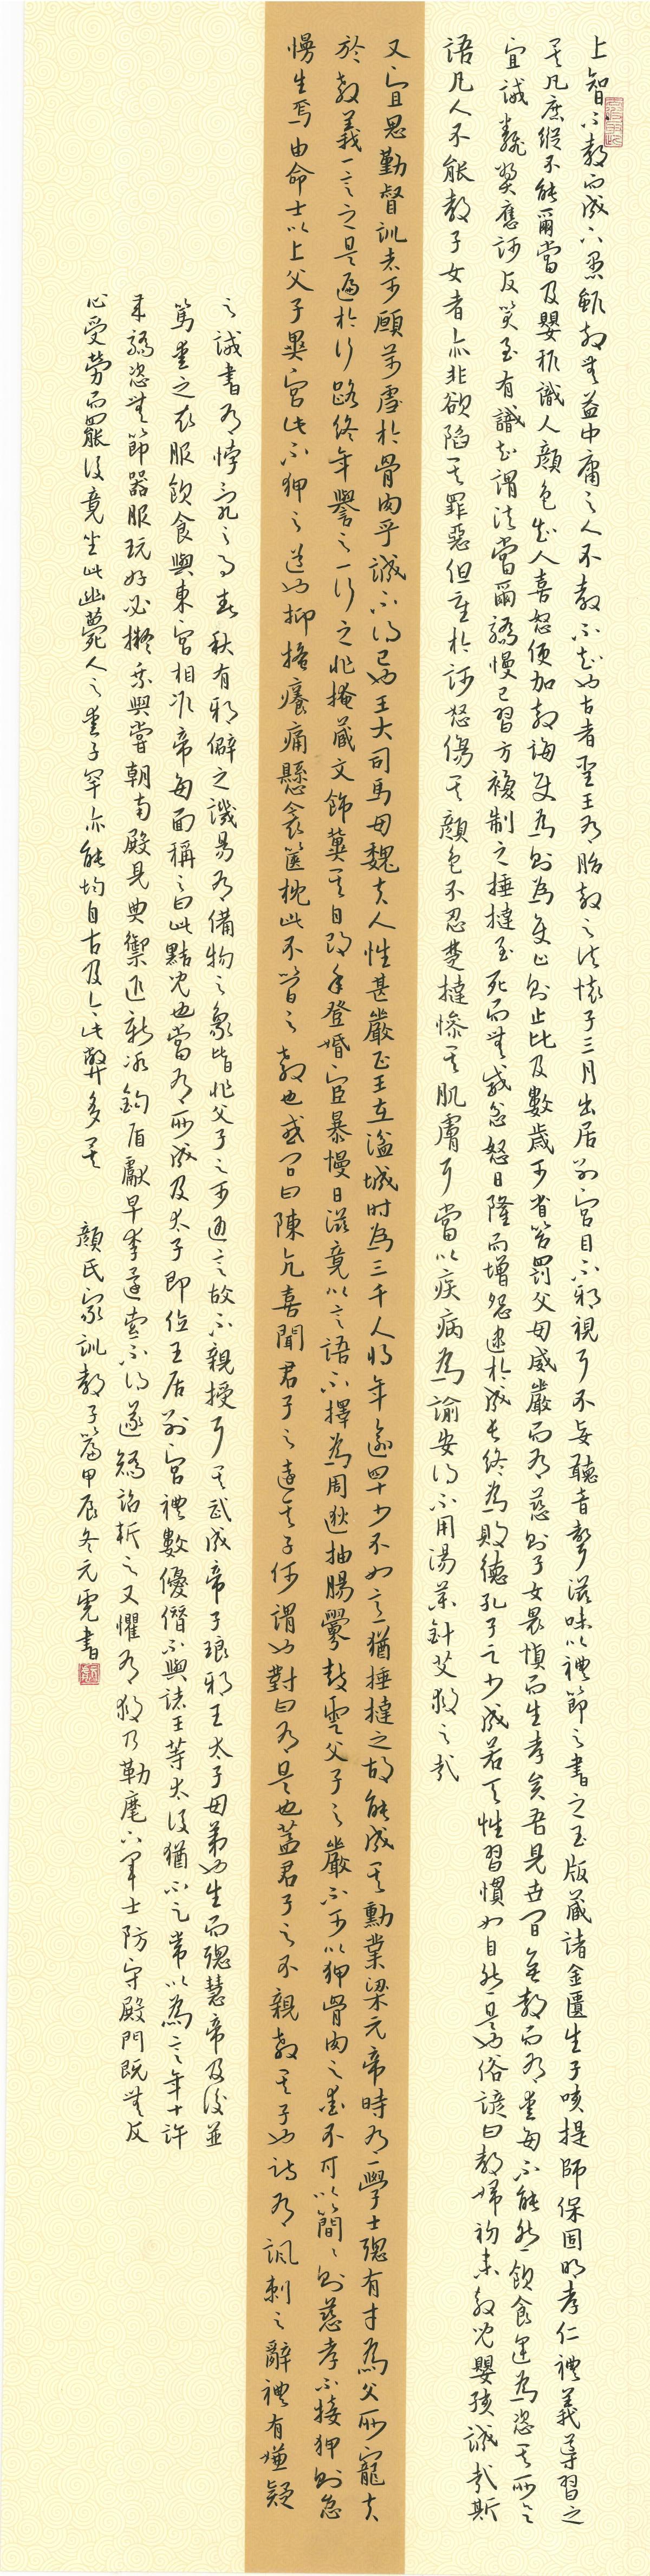 上智不教而成下愚雖教無益中庸之人不教不知也古者聖王有胎教之法懷子三月出居別宮目不邪視耳不妄聽音聲滋味以禮節之書之玉版藏諸金匱生子咳提師保固明孝仁禮義導習之
矣凡庶縱不能爾當及嬰稚識人顏色知人喜怒便加教誨使為則為使止則止比及數歲可省笞罰父母威嚴而有慈則子女畏慎而生孝矣吾見世間無教而有愛每不能然飲食運為恣其所欲
宜誡翻獎應訶反笑至有識知謂法當爾驕慢已習方複制之捶撻至死而無威忿怒日隆而增怨逮於成長終為敗德孔子云少成若天性習慣如自然是也俗諺曰教婦初來教兒嬰孩誠哉斯
語凡人不能教子女者亦非欲陷其罪惡但重於訶怒傷其顏色不忍楚撻慘其肌膚耳當以疾病為諭安得不用湯藥針艾救之哉
又宜思勤督訓者可願苛虐於骨肉乎誠不得已也王大司馬母魏夫人性甚嚴正王在湓城時為三千人將年逾四十少不如意猶捶撻之故能成其勳業梁元帝時有一學士聰有才為父所寵失
於教義一言之是遍於行路終年譽之一行之非掩藏文飾冀其自改年登婚宦暴慢日滋竟以言語不擇為周逖抽腸釁鼓雲父子之嚴不可以狎骨肉之愛不可以簡簡則慈孝不接狎則怠
慢生焉由命士以上父子異宮此不狎之道也抑搔癢痛懸衾篋枕此不簡之教也或問曰陳亢喜聞君子之遠其子何謂也對曰有是也蓋君子之不親教其子也詩有諷刺之辭禮有嫌疑
之誡書有悖亂之事春秋有邪僻之譏易有備物之象皆非父子之可通言故不親授耳其武成帝子琅邪王太子母弟也生而聰慧帝及後並
篤愛之衣服飲食與東宮相準帝每面稱之曰此黠兒也當有所成及太子即位王居別宮禮數優僭不與諸王等太後猶不足常以為言年十許
歲驕恣無節器服玩好必擬乘輿嘗朝南殿見典禦進新冰鉤盾獻早李還索不得遂矯詔斬之又懼有救乃勒麾下軍士防守殿門既無反
心受勞而罷後竟坐此幽薨人之愛子罕亦能均自古及今此弊多矣 顏氏家訓教子篇甲辰冬元書